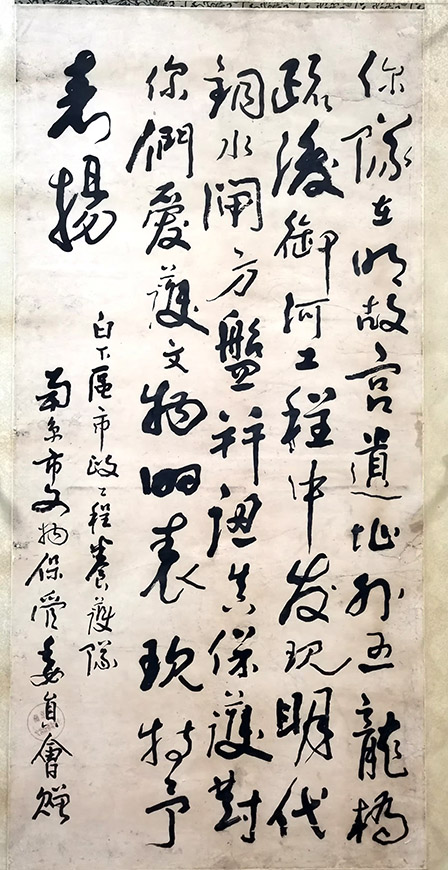 你隊在明故宫遺址外五龍橋
疏浚御河工程中发现明代
銅水閘方盤并認真保護對
你們愛護文物的表现特予
表揚
白下區市政工程養護隊
南京市文物保管委員會贈